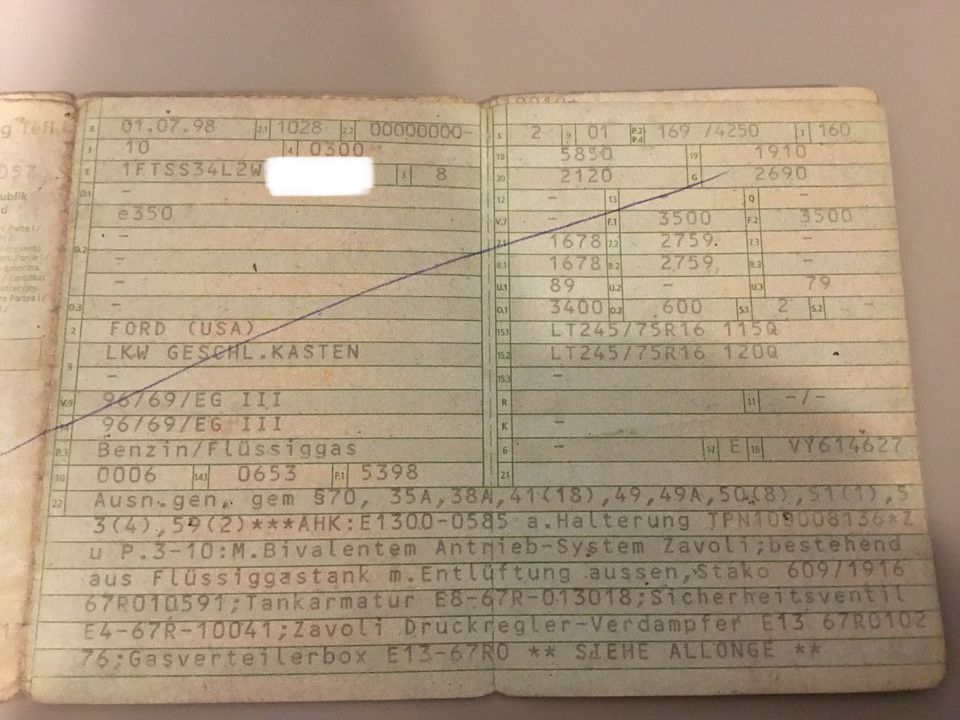 B 01.07.98 2.1 1028 2.2 00000000-
J 10 4 0300
E 1FTSS34L2W 3 8
D.1 -
e350
D.2 -
-
-
D.3 -
2 FORD (USA)
5 LKW GESCHL.KASTEN
-
V.9 96/69/EG III
14 96/69/EG III
P.3 Benzin/Flüssiggas
10 0006 14.1 0653 P.1 5398
L 2 9 01 P.2 P.4 169 /4250 T 160
18 5850 19 1910
20 2120 G 2690
12 - 13 - Q -
V.7 - F.1 3500 F.2 3500
7.1 1678 7.2 2759 7.3 -
8.1 1678 8.2 2759 8.3 -
U.1 89 U.2 - U.3 79
O.1 3400 O.2 600 S.1 2 S.2 -
15.1 LT245/75R16 115Q
15.2 LT245/75R16 120Q
15.3 -
R - 11 -/-
K -
6 - 17 E 16 VY614627
21
22 Ausn.gen. gem §70, 35A,38A,41(18),49,49A,50(8),51(1),5
3(4),59(2)***AHK:E1300-0585 a.Halterung *Z
u P.3-10:M.Bivalentem Antrieb-System Zavoli;bestehend
aus Flüssiggastank m.Entlüftung aussen,Stako 609/1916
67R010591;Tankarmatur E8-67R-013018;Sicherheitsventil
E4-67R-10041;Zavoli Druckregler-Verdampfer E13 67R0102
76;Gasverteilerbox E13-67R0 ** SIEHE ALLONGE **